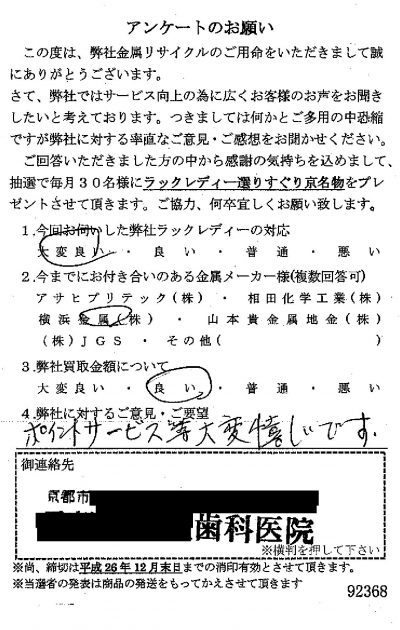 アンケートのお願い
この度は、弊社金属リサイクルのご用命をいただきまして誠
にありがとうございます。
さて、弊社ではサービス向上の為に広くお客様のお声をお聞き
したいと考えております。つきましては何かとご多用の中恐縮
ですが弊社に対する率直なご意見・ご感想をお聞かせください。
ご回答いただきました方の中から感謝の気持ちを込めまして、
抽選で毎月30名様にラックレディー選りすぐり京名物をプレ
ゼントさせて頂きます。ご協力、何卒宜しくお願い致します。
1.今回お伺いした弊社ラックレディーの対応
大変良い・良い・普通・悪い
2.今までにお付き合いのある金属メーカー様(複数回答可)
アサヒプリテック(株)・相田化学工業(株)
横浜金属(株)・山本貴金属地金(株)
(株)JGS・その他( )
3.弊社買取金額について
大変良い・良い・普通・悪い
4.弊社に対するご意見・ご要望
ポイントサービス等大変嬉しいです.
御連絡先
京都市
歯科医院
※横判を押して下さい
※尚、締切は平成26年12月末日までの消印有効とさせて頂きます。
※当選者の発表は商品の発送をもってかえさせて頂きます
92368